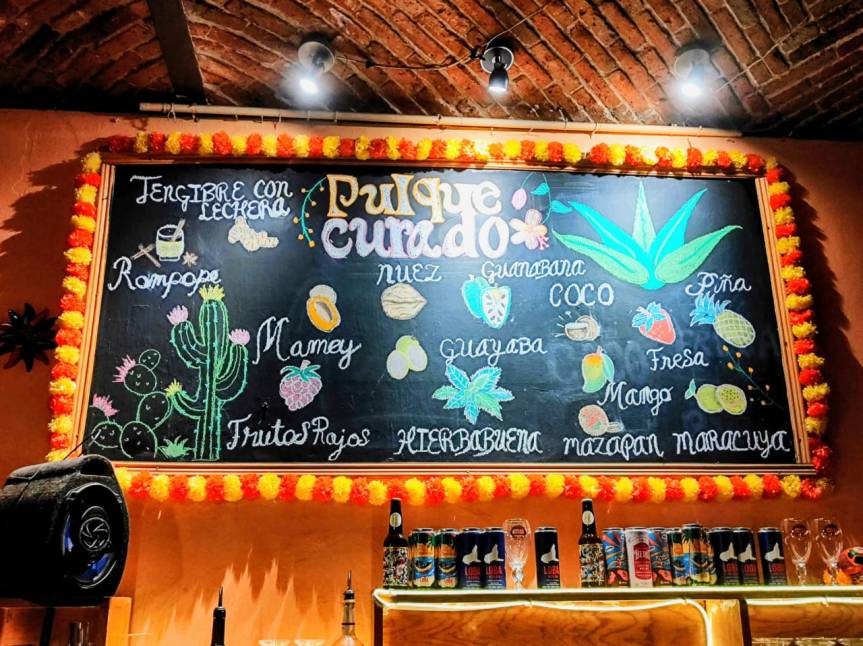 JENGIBRE CON
LECHERA
Pulque
curado
Rompope
NUEZ
GUANABANA
COCO
Piña
Mamey
GUAYABA
FRESA
Mango
FrutosRojos
HIERBABUENA
MAZAPAN
MARACUYA
LOBA
LOBA
LOBA
LOBA